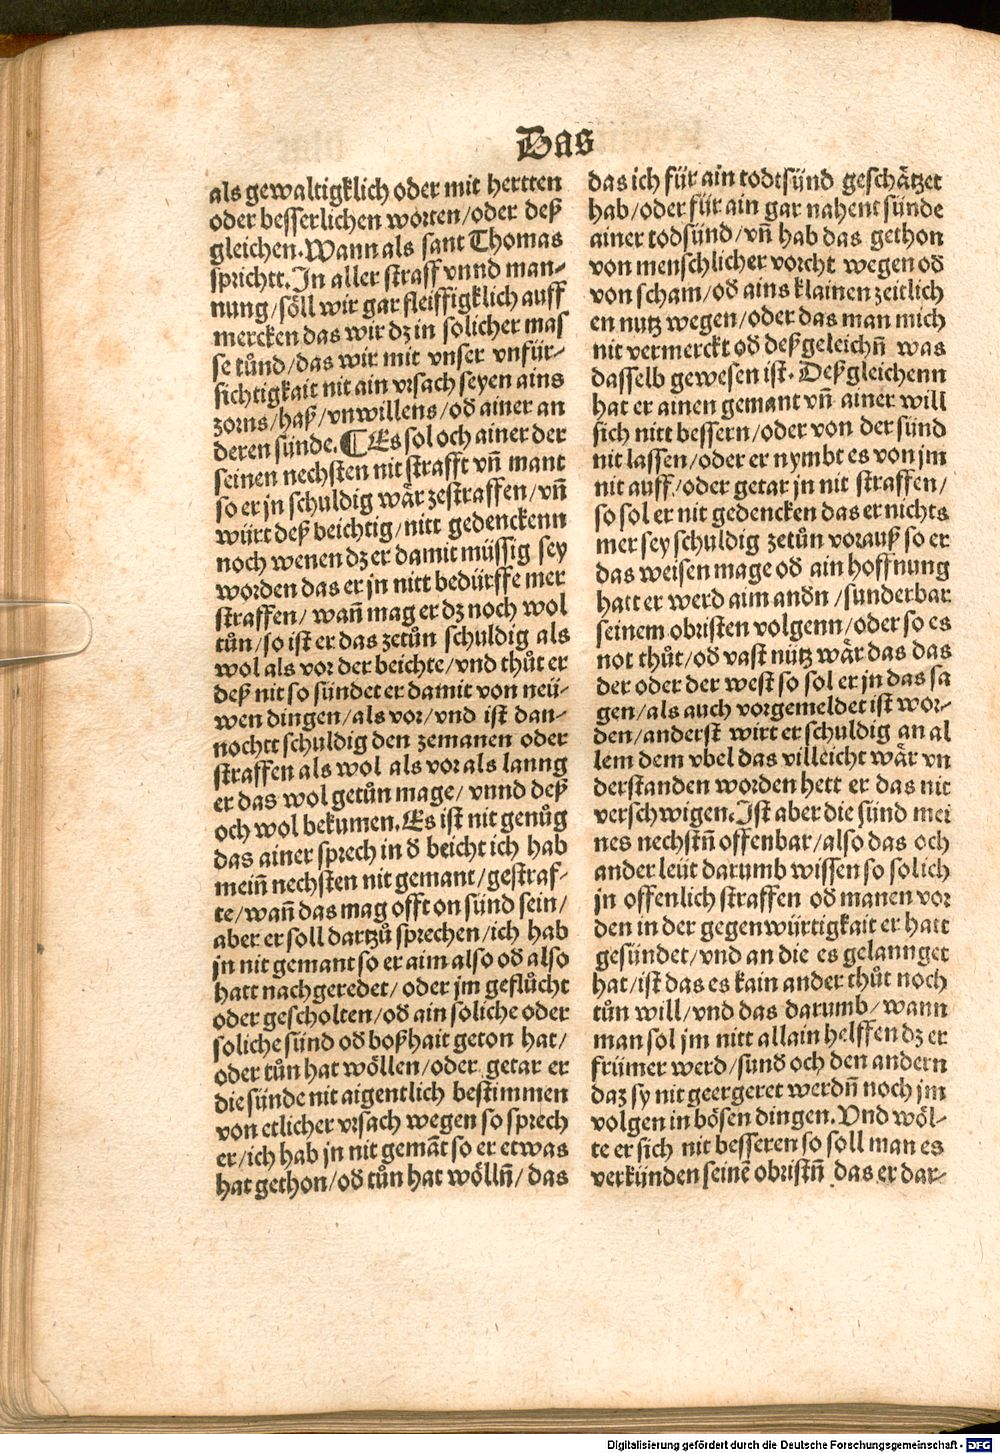 Das
als gewaltigklich oder mit hertten
oder besserlichen worten/oder deß
gleichen. Wann als sant Thomas
sprichtt. In aller straff vnnd man-
nung/söll wir gar fleissigklich auff
mercken das wir dz in solicher mas
se tůnd/das wir mit vnser vnfür-
sichtigkait nit ain vrsach seyen ains
zorns/haß/vnwillens/oď ainer an
deren sünde. ¶ Es sol och ainer der
seinen nechsten nit strafft vñ mant
so er jn schuldig wår zestraffen/vñ
würt deß beichtig/nitt gedenckenn
noch wenen dz er damit müssig sey
worden das er jn nitt bedürffe mer
straffen/wañ mag er dz noch wol
tůn/so ist er das zetůn schuldig als
wol als vor der beichte/vnd thůt er
deß nit so sündet er damit von neü-
wen dingen/als vor/vnd ist dan-
nochtt schuldig den zemanen oder
straffen als wol als vor als lanng
er das wol getůn mage/vnnd deß
och wol bekumen. Es ist nit genůg
das ainer sprech in ď beicht ich hab
meiñ nechsten nit gemant/gestraf-
te/wañ das mag offt on sünd sein/
aber er soll dartzů sprechen/ich hab
jn nit gemant so er aim also oď also
hatt nachgeredet/oder jm geflůcht
oder gescholten/oď ain soliche oder
soliche sünd oď boßhait geton hat/
oder tůn hat wöllen/oder getar er
die sünde nit aigentlich bestimmen
von etlicher vrsach wegen so sprech
er/ich hab jn nit gemãt so er etwas
hat gethon/oď tůn hat wöllñ/das
das ich für ain todtsünd geschåtzet
hab/oder für ain gar nahent sünde
ainer todsünd/vñ hab das gethon
von menschlicher vorcht wegen oď
von scham/oď ains klainen zeitlich
en nutz wegen/oder das man mich
nit vermerckt oď deßgeleichñ was
dasselb gewesen ist. Deßgleichenn
hat er ainen gemant vñ ainer will
sich nitt bessern/oder von der sünd
nit lassen/oder er nymbt es von jm
nit auff/oder getar jn nit straffen/
so sol er nit gedencken das er nichts
mer sey schuldig zetůn vorauß so er
das weisen mage oď ain hoffnung
hatt er werd aim anďn/sunderbar
seinem obristen volgenn/oder so es
not thůt/oď vast nütz wår das das
der oder der west so sol er jn das sa
gen/als auch vorgemeldet ist wor-
den/anderst wirt er schuldig an al
lem dem vbel das villeicht wår vn
derstanden worden hett er das nit
verschwigen. Ist aber die sünd mei
nes nechstñ offenbar/also das och
ander leüt darumb wissen so solich
jn offenlich straffen oď manen vor
den in der gegenwürtigkait er hatt
gesündet/vnd an die es gelannget
hat/ist das es kain ander thůt noch
tůn will/vnd das darumb/wann
man sol jm nitt allain helffen dz er
frümer werd/sunď och den andern
daz sy nit geergeret werdñ noch jm
volgen in bösen dingen. Vnd wöl-
te er sich nit besseren so soll man es
verkünden seinẽ obristñ das er dar-
Digitalisierung gefördert durch die Deutsche Forschungsgemeinschaft - DFG